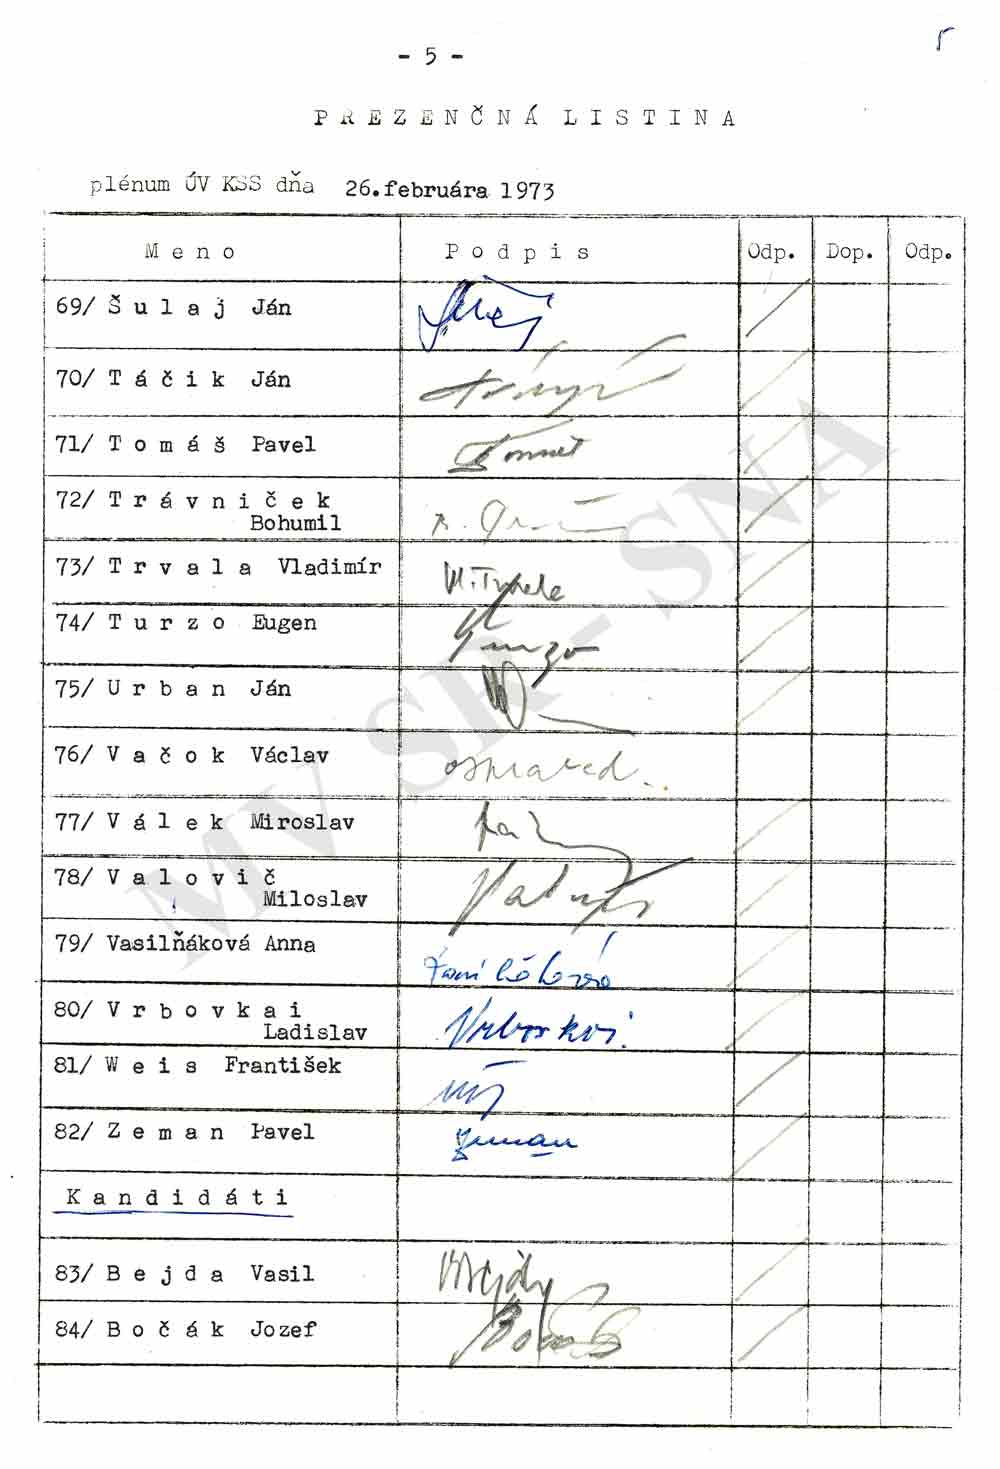 5
- 5 -
PREZENČNÁ LISTINA
plénum ÚV KSS dňa 26.februára 1973
Meno Podpis Odp. Dop. Odp.
69/ Šulaj Ján
70/ Táčik Ján
71/ Tomáš Pavel
72/ Trávniček
Bohumil
73/ Trvala Vladimír
74/ Turzo Eugen Turzo
75/ Urban Ján
76/ Vačok Václav ospraved.
77/ Válek Miroslav
78/ Valovič
Miloslav
79/ Vasilňáková Anna
80/ Vrbovkai
Ladislav
81/ Weis František
82/ Zeman Pavel Zeman
Kandidáti
83/ Bejda Vasil
84/ Bočák Jozef
MV SR - SNA